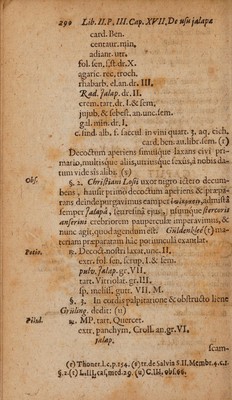 290 Lib. II. P. III. Cap. XVII. De usu jalapæ
card. Ben.
centaur. min.
adiant. utr.
fol. sen. s, st dr. X.
agaric. rec. troch.
rhabarb. el. an. dr. III.
Rad. Jalap. dr. II.
crem. tart. dr. I. & sem,
jujub. & sebest. an. unc. sem.
gal. min. dr. I.
c. lind. alb. f. saccul. in vini quart. 3. aq. cich.
card. ben. au. libr. sem. (r)
Decoctum aperiens similique laxans civi pri-
mario, multisque aliis, utriusque sexus, à nobis da-
tum vide sis alibi. (s)
Obs. §. 2. Christiani Losii uxor nigro ictero decum-
bens, hausit primo decoctum aperiens & præpa-
rans deinde purgavimus eam admistâ
semper Jalapâ, seu resinâ ejus, usumque stercoris
anserini crebriorem pauperculæ imperavimus, &
nunc agit, quod agendum est. Güldenklee (t) ma-
teriam præparatam hâc potiunculâ exantlat.
Potio. ℞. Decoct. nostri laxat. unc. II.
extr. fol. sen. scrup. I. & sem.
pulv. Jalap. gr. VII.
tart. Vitriolat. gr. III.
sp. meliss. gutt. VII. M.
§. 3. In cordis palpitatione & obstructo liene
Grüling. dedit: (u)
Pilul. ℞. MP. tart. Quercet.
extr. panchym. Croll. an. gr. VI.
jalap.
scam-
(r) Thoner. l. c. p. 194. (s) tr. de Salvia S. II. Membr. 4. c. 1.
§. 2. (t) L. III. cas. med. 29. (u) C. III. obs. 66.